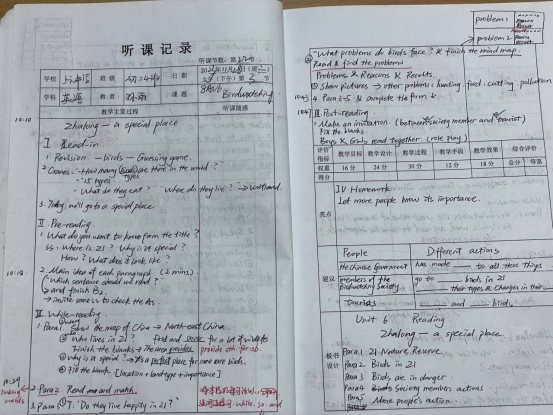 听课记录
听课节数：第12节
学校
班级 初二4班
日期
(下午) 第3节
学科 英语
教者
课题 8A U6
Birdwatching
教学主要过程
听课随感
10:10
Zhalong — a special place
I Lead-in
1. Revision - birds - Guessing game.
2. Cranes - "How many types are there in the world?"
- "15 types"
- What do they eat? "Where do they live?" → wetland.
3. Today, we'll go to a special place.
II. Pre-reading
1. What do you want to know from the title?
SS: Where is Zl? Why is it special?
How? What does it look like?
10:18
2. Main idea of each paragraph (2 mins)
(which sentence should we read?
and finish B2
→ invite some ss to check the As.
III. While-reading
1. Para1. Show the map of China → North-east China
② Who lives in Zl? Find and for a lot of wildlife
Finish the blanks + the area provides provide sth. for sb.
③ Why is it special? → It's a perfect place for some rare birds.
④ Fill the blank [location + bird type + importance]
10:29
linking words
2. Para2 Read and match.
3. Para3 ① T: "Do they live happily in Zl?"
while, so, and
problem 1
problem 2
② "What problems do birds face? & finish the mind map.
Read & find the problems
Problems & Reasons & Results
③ Show pictures → other problems: hunting, food, cutting, pollution
10:43
4. Para 4-5. & complete the form ↓
10:47
III. Post-reading
1. Make an invitation (between society member and tourist)
Fill the blanks
Boys & Girls read together (role play)
评价指标 教学目标 教学设计 教学过程 教学手段 教学效果 综合评价
权重 16分 24分 30分 12分 18分 总分 等第
得分
IV. Homework
Let more people know its importance.
亮点
建议
People Different actions
the Chinese Government has made to all these things
members of the Birdwatching Society go to birds in Zl
their types & changes in their
Tourists and birds
Unit 6 Reading
Zhalong — a special place.
板书设计
Para1 Zl Nature Reserve
Para2 Birds in Zl
Para3 Birds are in danger
Para4 Birds Society members actions
Para5 More people's action